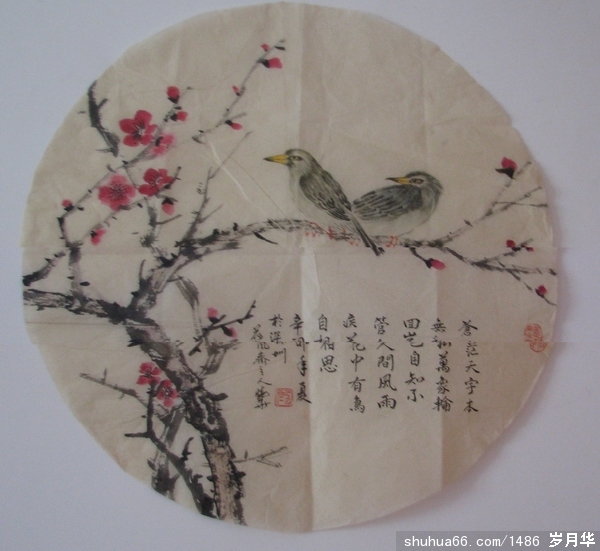 蒼茫天宇本
無和萬象輪
回豈自知不
管人間風雨
疾花中有鳥
自相思
辛卯年夏
於深圳
shuhua66.com/1486 岁月华